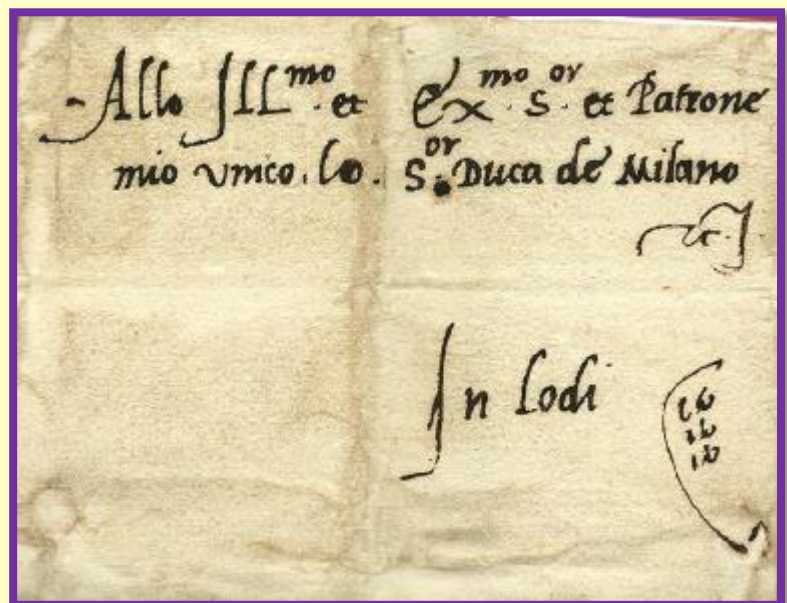 Allo Ill^mo. et Ex^mo. S^or. et Patrone
mio vnico. lo. S^or. Duca de Milano
In Lodi